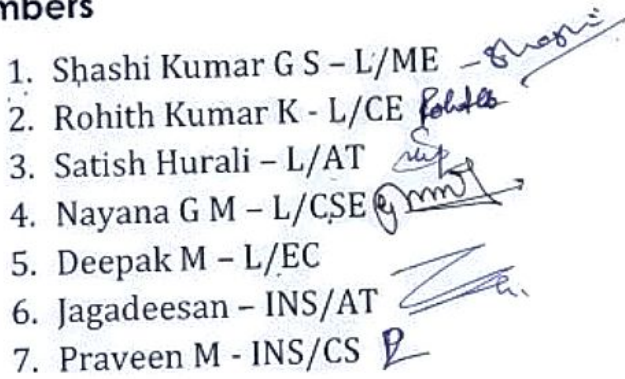 mbers
1. Shashi Kumar G S – L/ME – Shashi
2. Rohith Kumar K - L/CE Rohith
3. Satish Hurali – L/AT
4. Nayana G M – L/CSE
5. Deepak M – L/EC
6. Jagadeesan – INS/AT
7. Praveen M - INS/CS